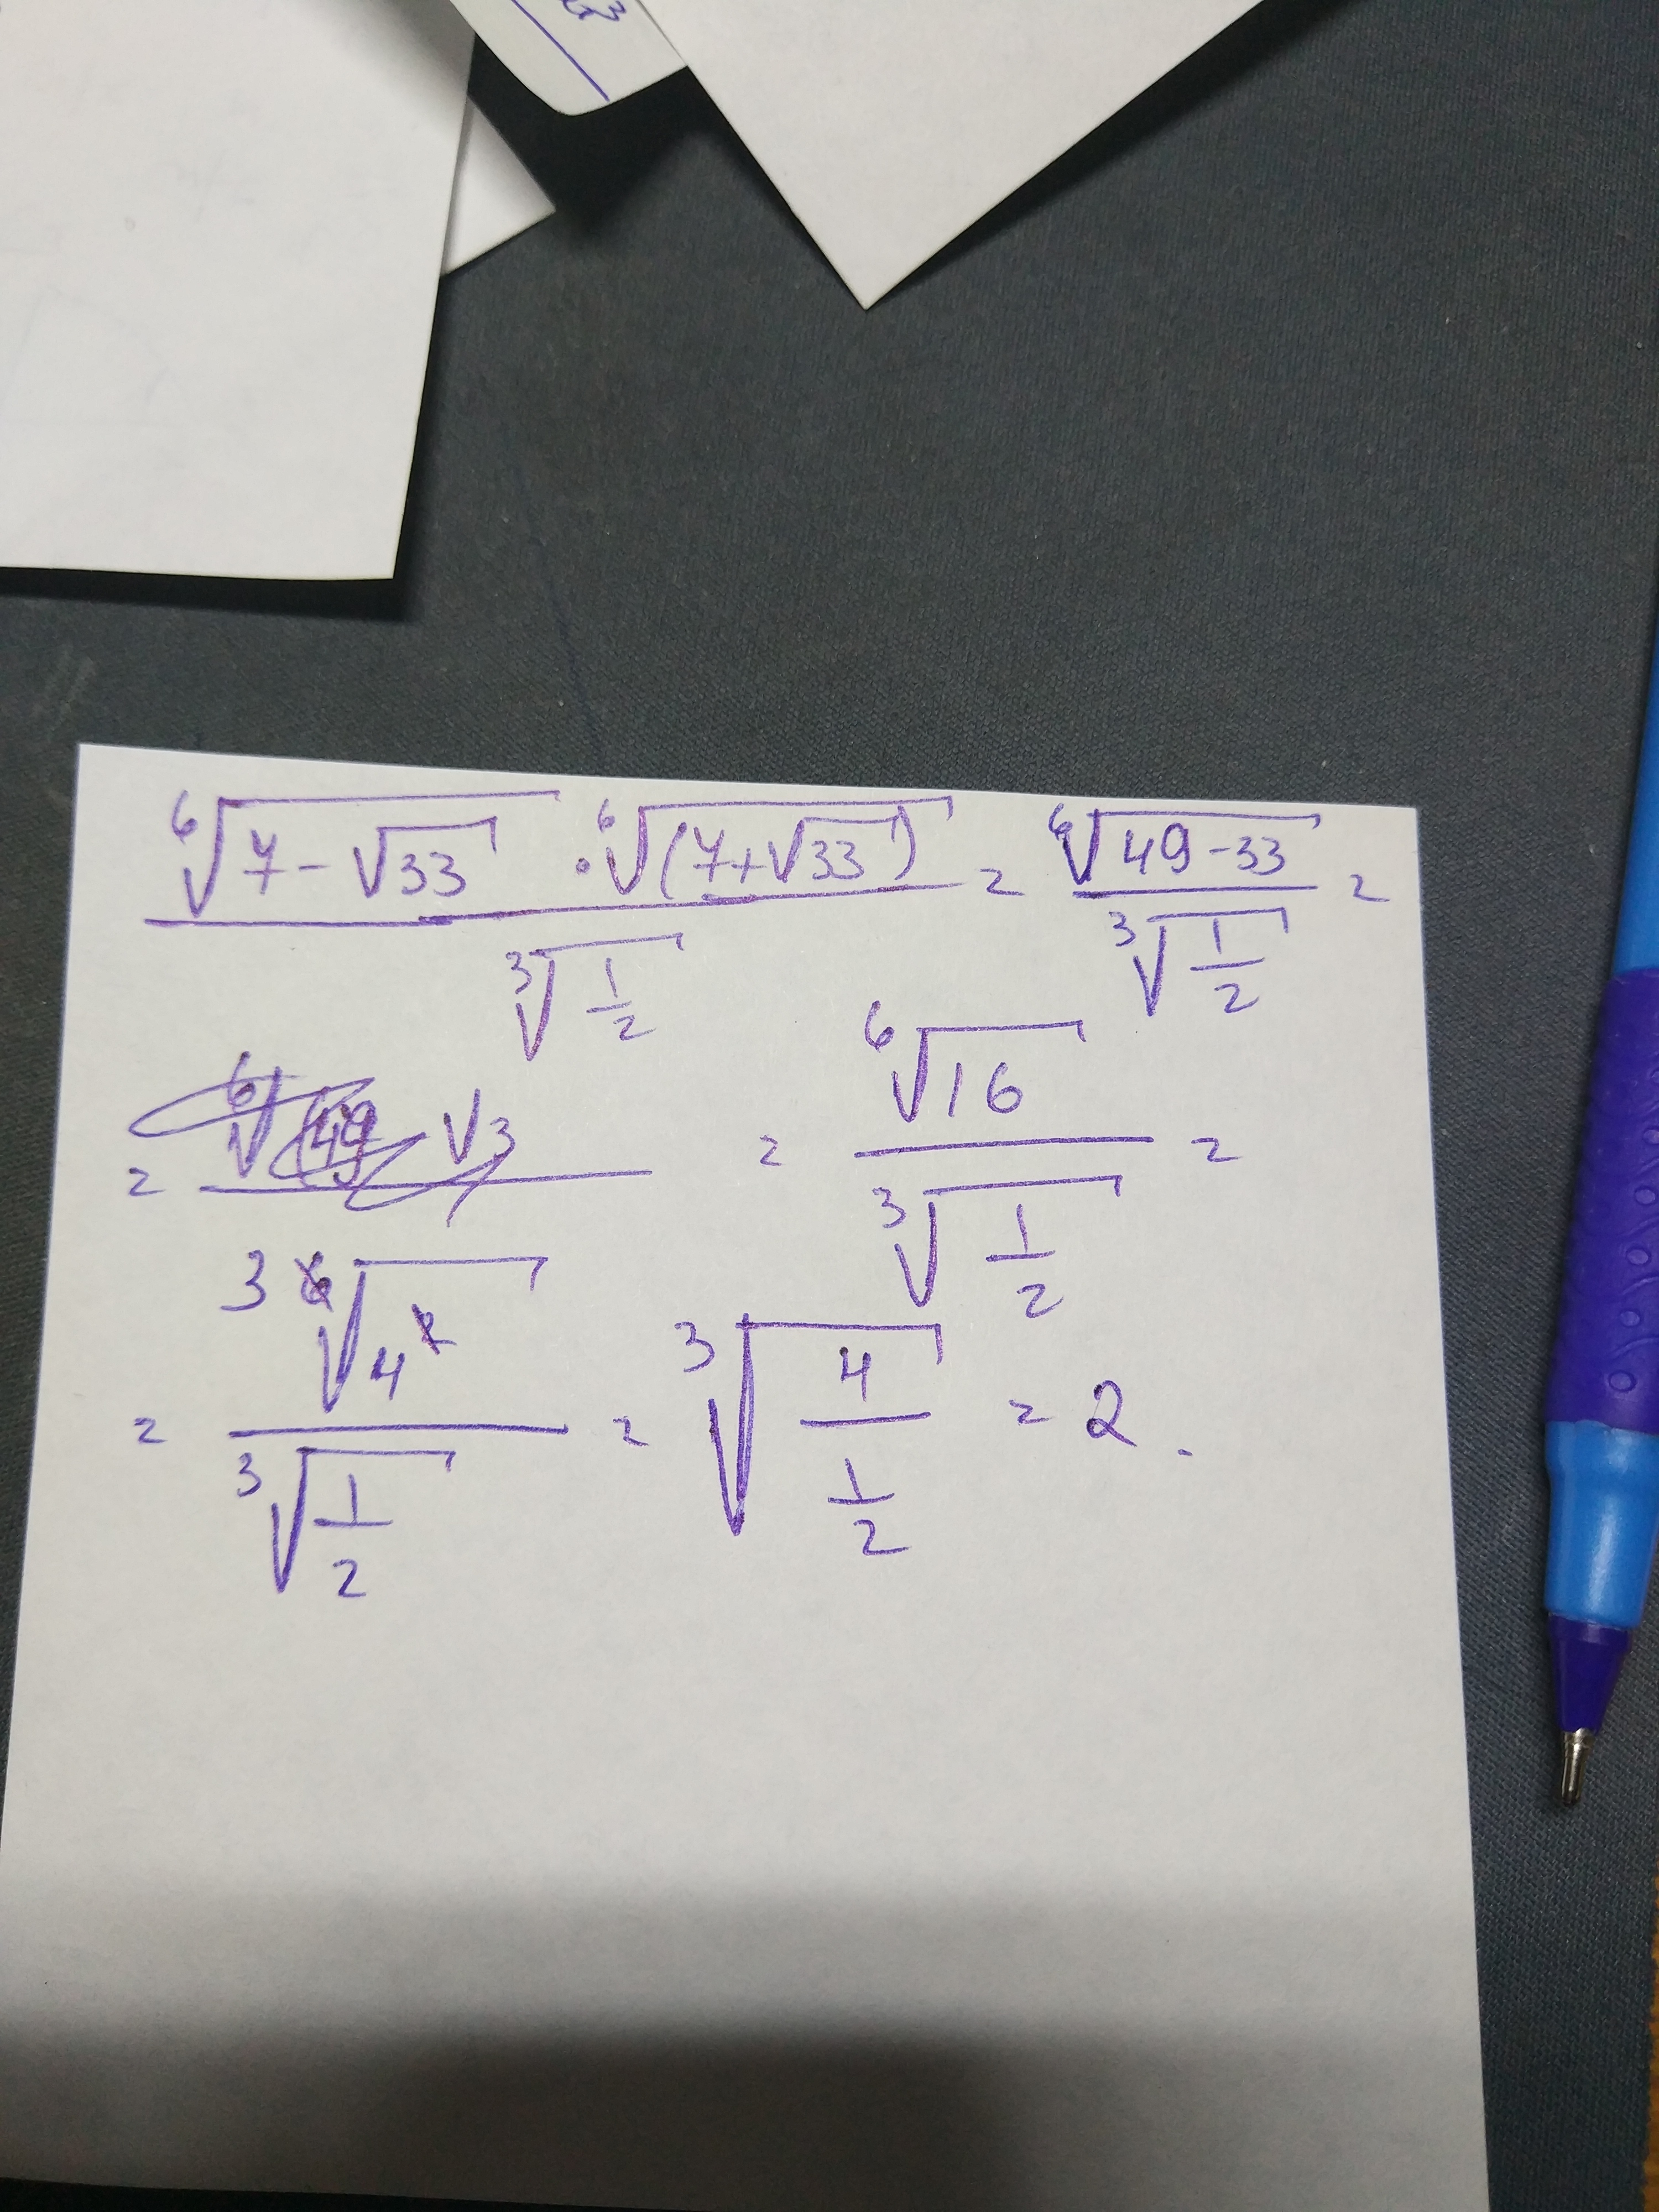 ⁶√(7 - √33) · ⁶√((7+√33)) / ³√(1/2) = ⁶√(49-33) / ³√(1/2) =
= ⁶√16 / ³√(1/2) =
= ³√4 / ³√(1/2) = ³√(4 / (1/2)) = 2.